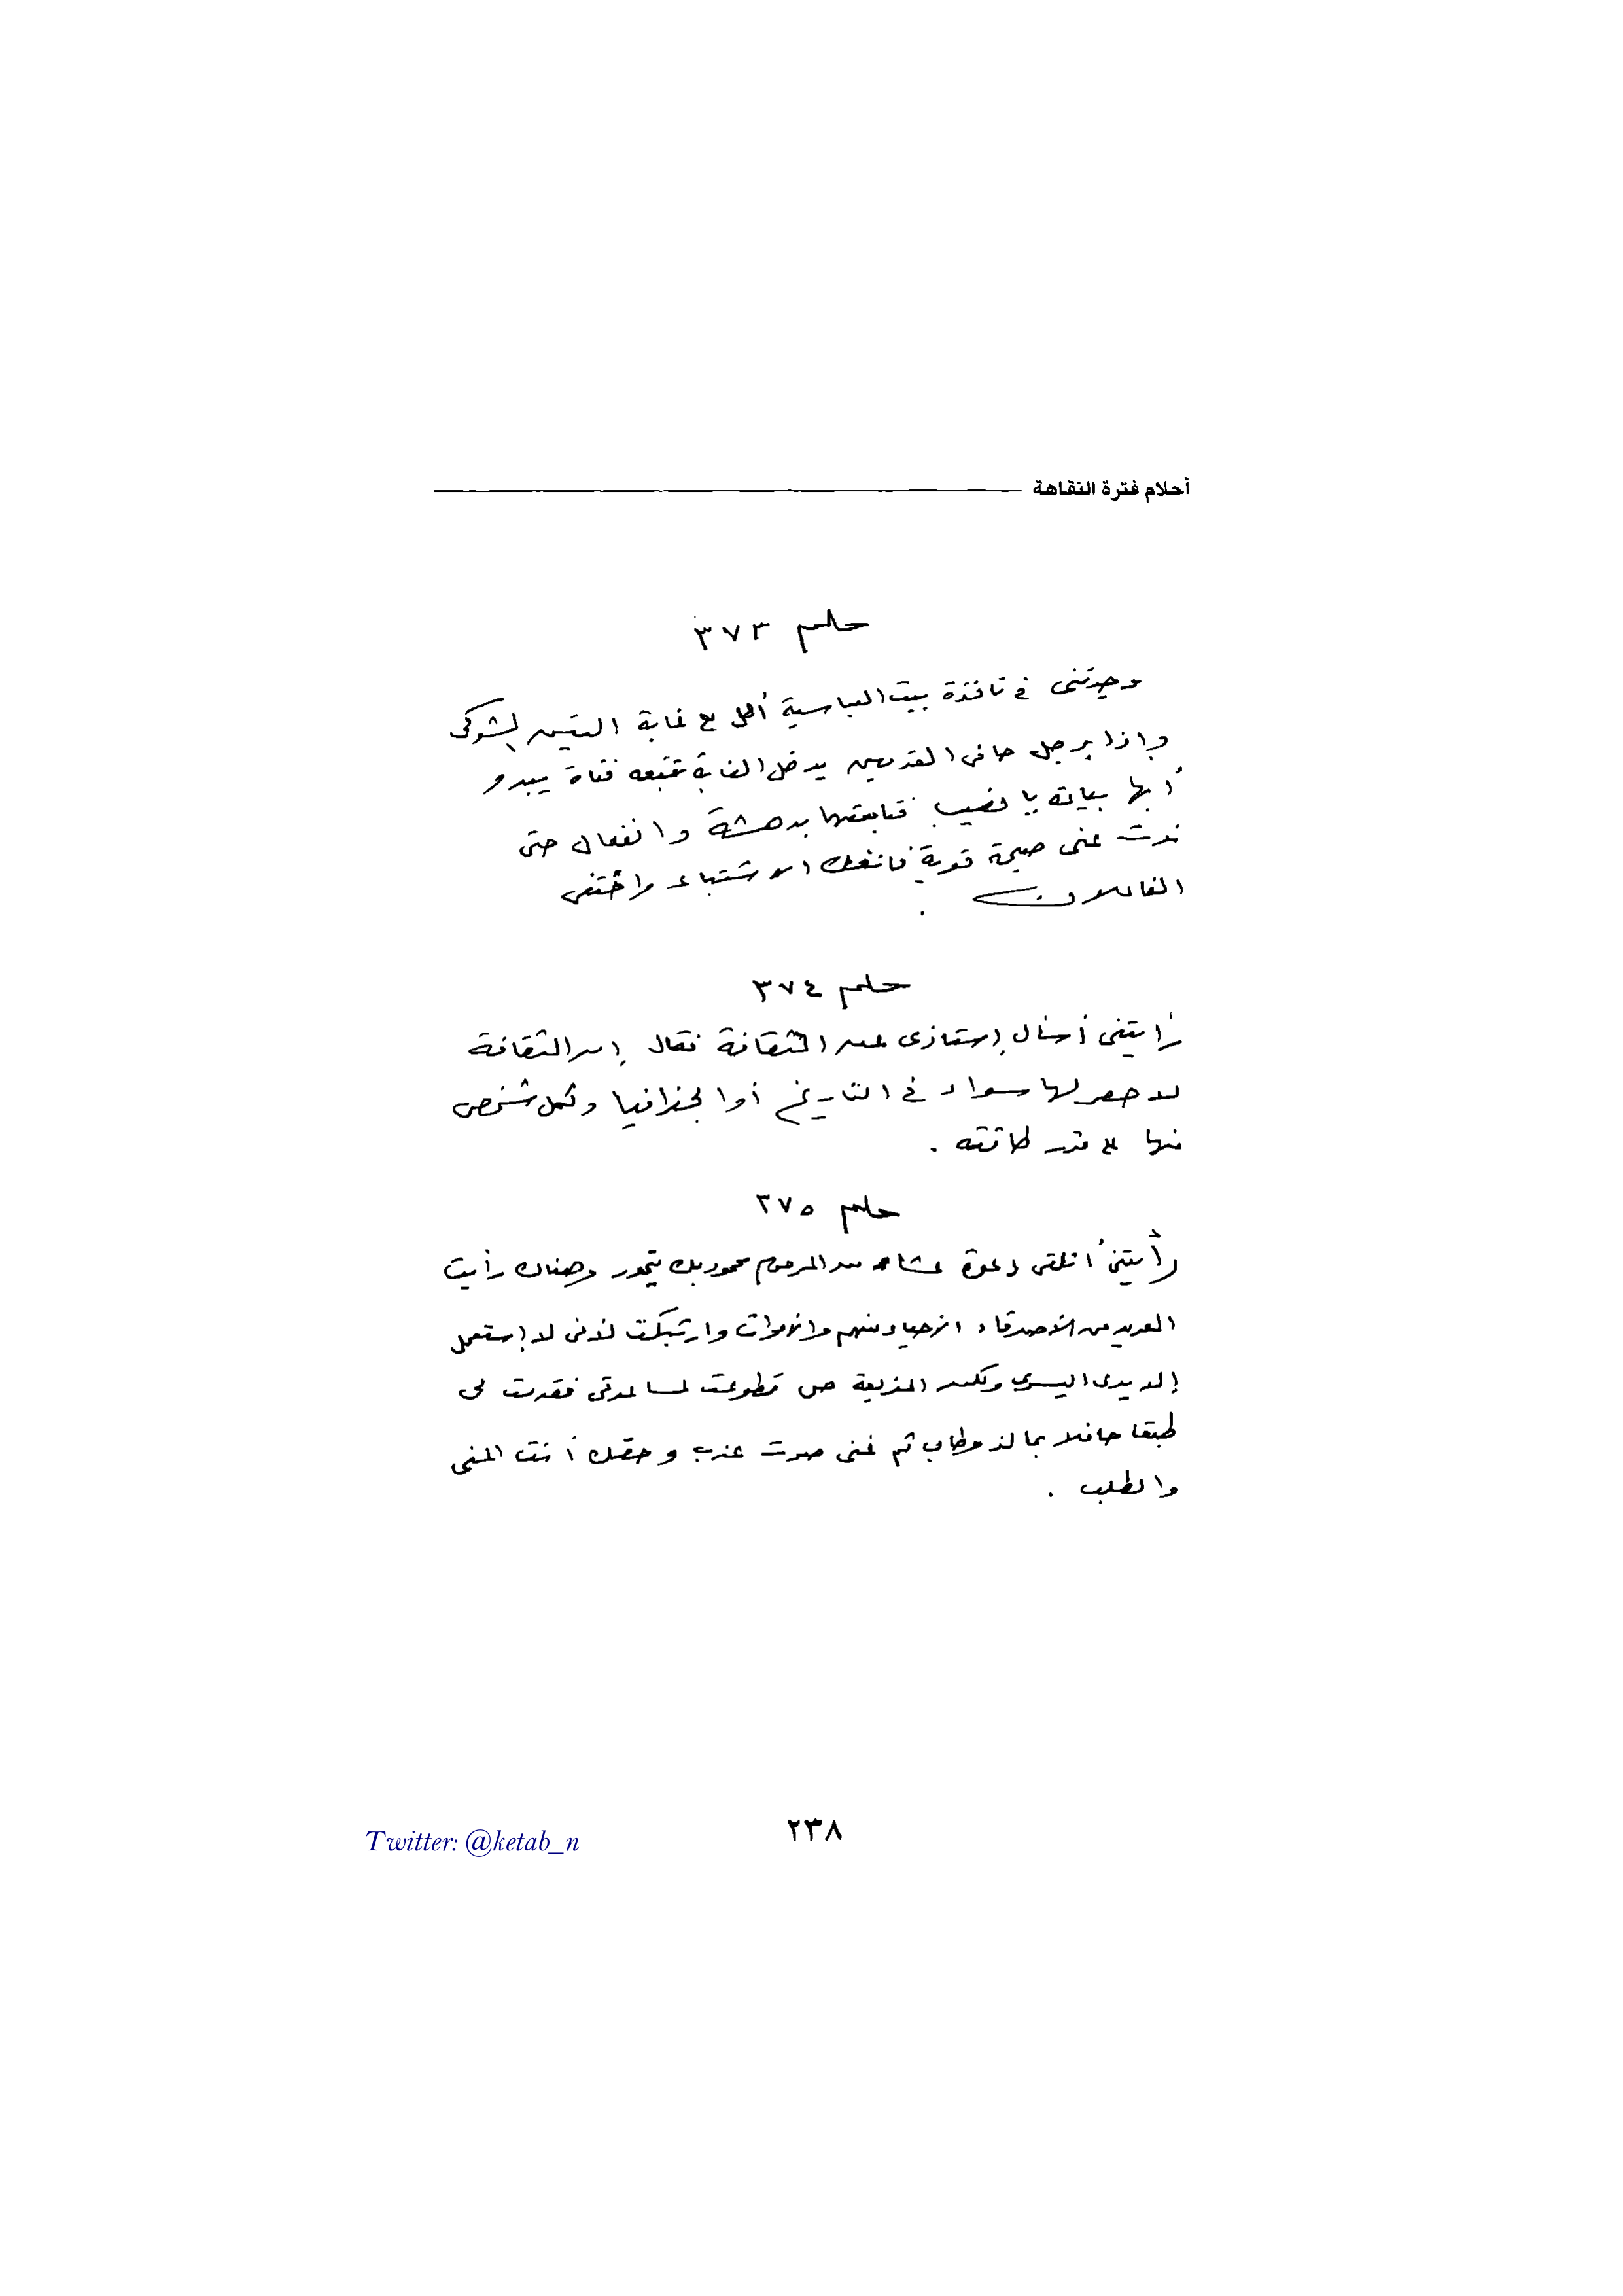 أحلام فترة النقاهة
حلم ٣٧٣
وجدتنى فى نافذة بيت العباسية أطل على غابة التين الشوكى
وإذا برجل حافى القدمين يدخل الغابة تتبعه فتاة يبدو
أنها بياعة يا نصيب فتابعتهما بدهشة وانفعال حتى
ندت عنى صيحة قوية فانفك الاشتباك واختفى
الفاعلان .
حلم ٣٧٤
رأيتنى أسأل إستاذى عن الثقافة فقال إن الثقافة
لا حصر لها سواء فى التاريخ أو الجغرافيا ولكل شخص
منها على قدر طاقته .
حلم ٣٧٥
رأيتنى أتلقى دعوة عشاء من المرحوم محمود بك تيمور وهناك رأيت
العديد من الأصدقاء الأحياء منهم والأموات وارتبكت لأننى لا إستعمل
إلا يدى اليسرى ولكن المذيعة ص تطوعت لمساعدتى فقدمت لى
طبقا حافلا بما لذ وطاب ثم غنى صوت عذب وحقك أنت المنى
والطلب .
٢٣٨
Twitter: @ketab_n